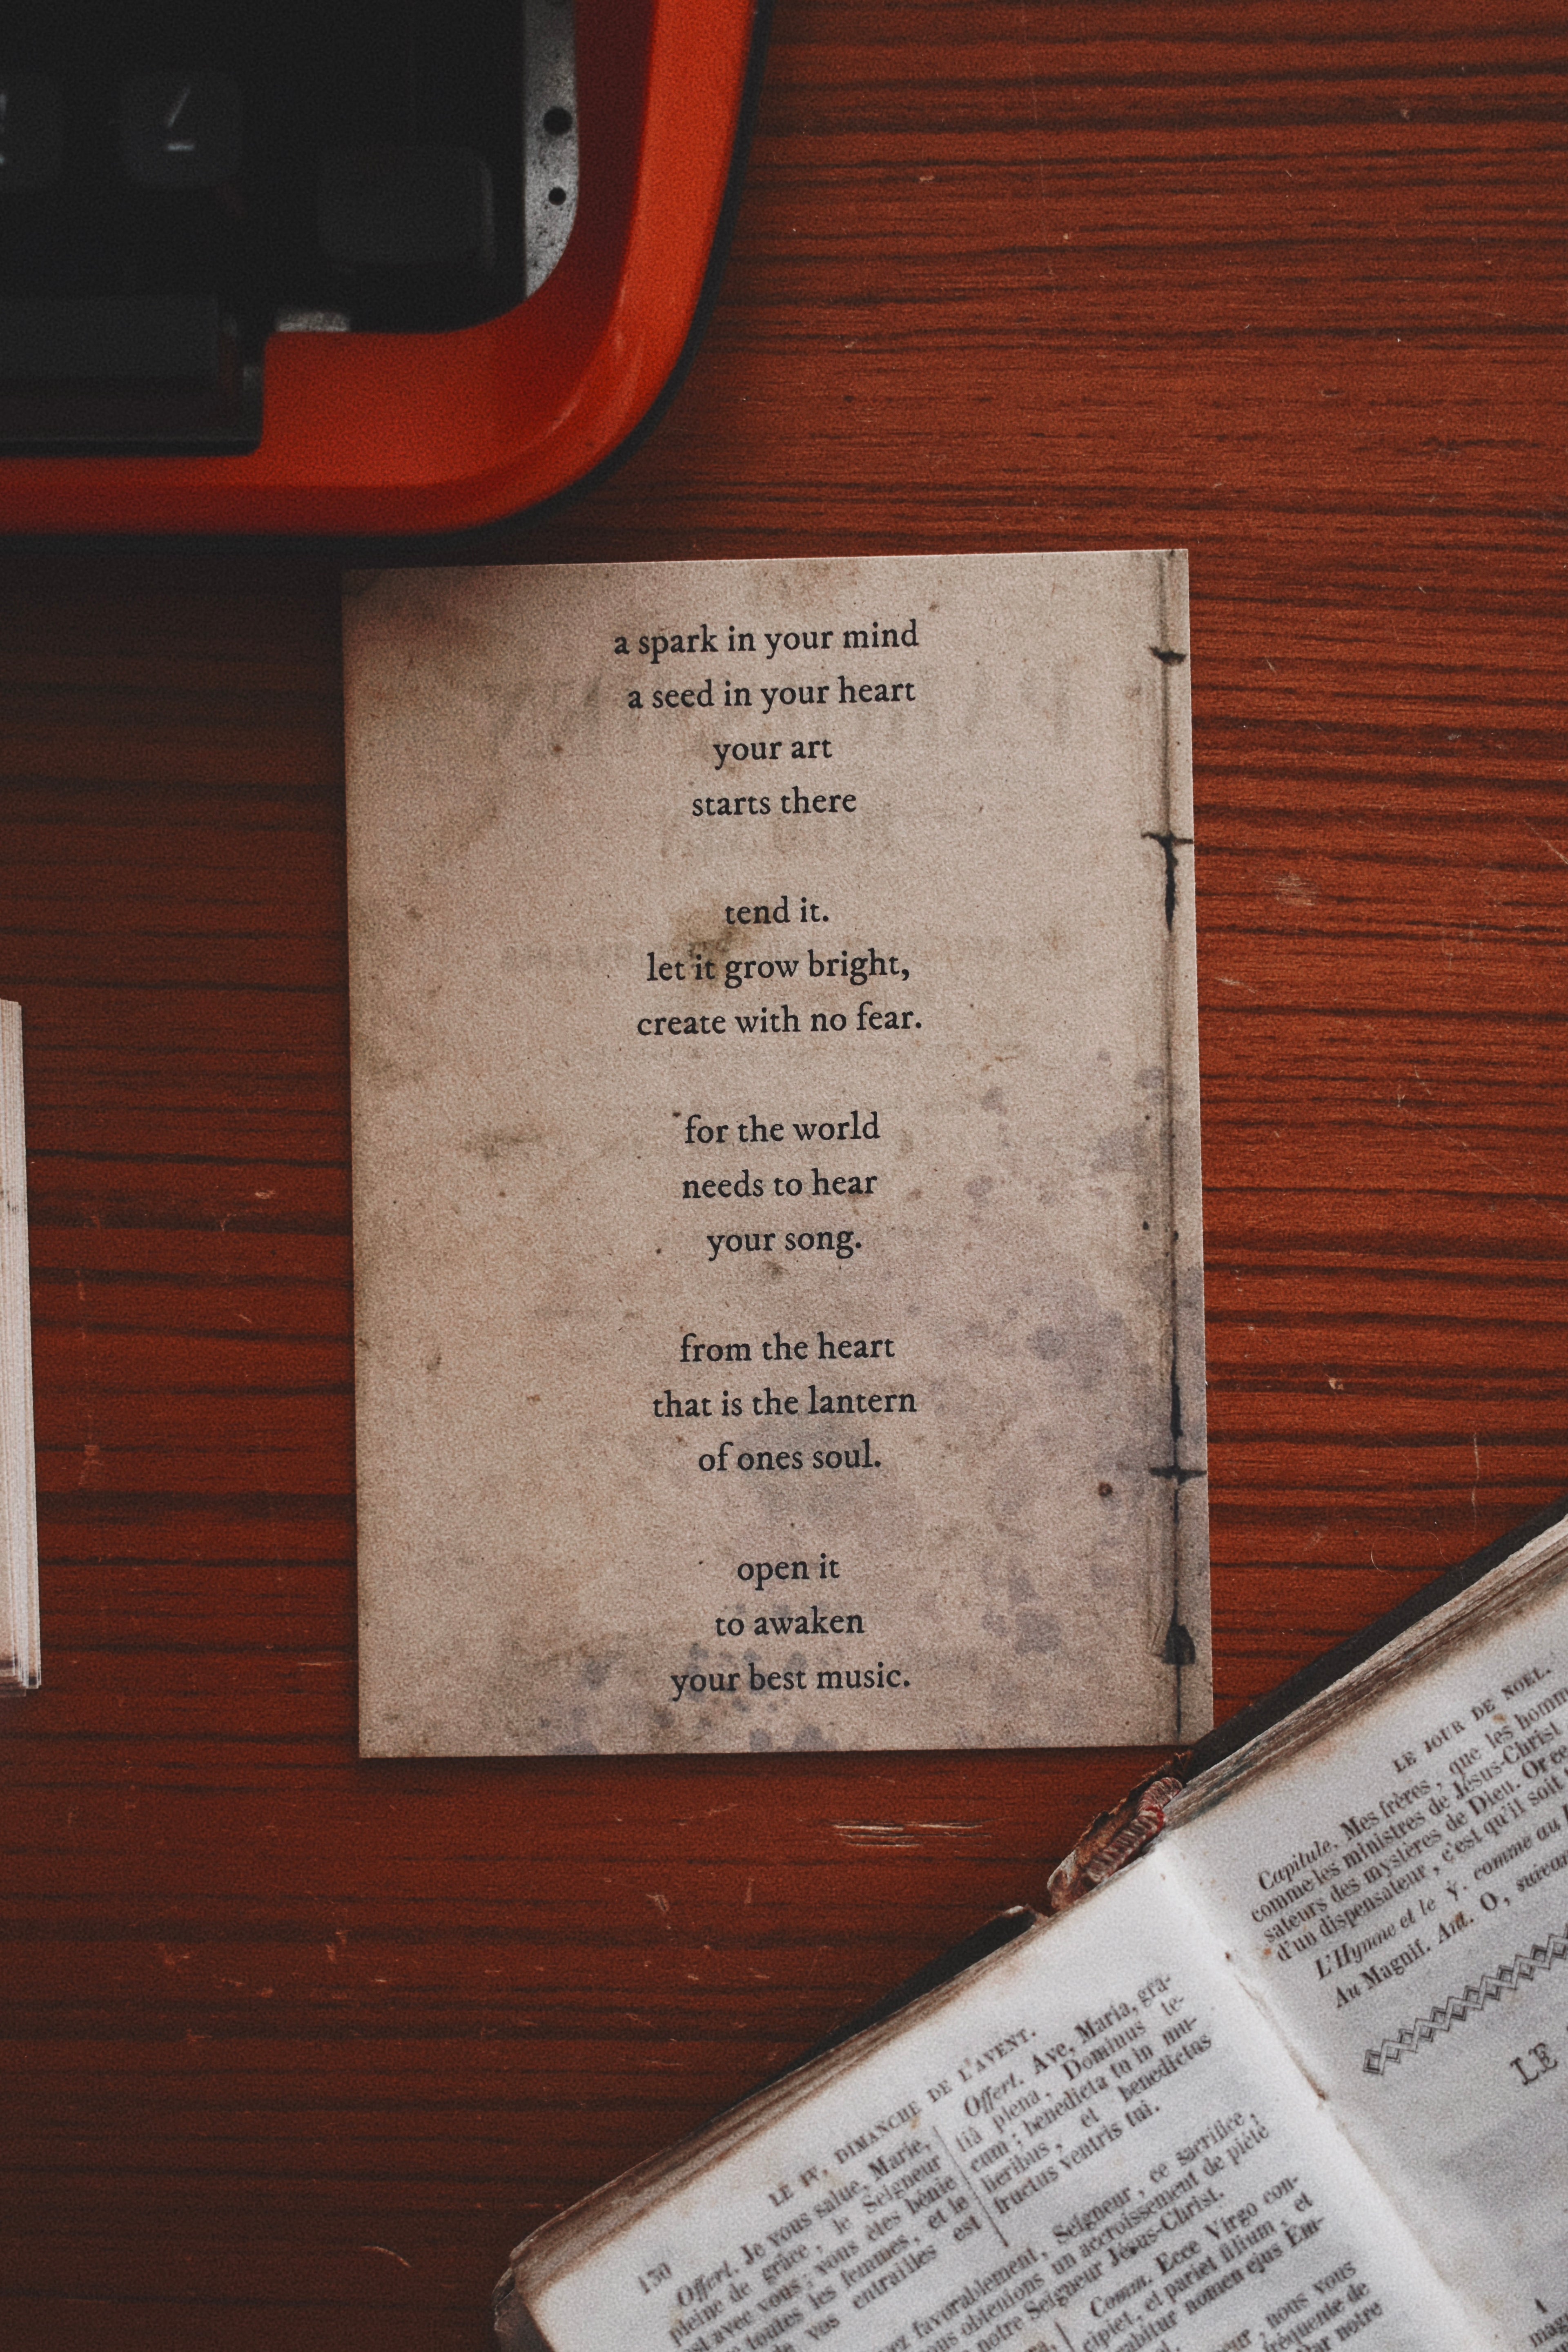 a spark in your mind
a seed in your heart
your art
starts there
tend it.
let it grow bright,
create with no fear.
for the world
needs to hear
your song.
from the heart
that is the lantern
of ones soul.
open it
to awaken
your best music.
LE JOUR DE NOEL.
Capitule. Mes frères, que les homm
comme les ministres de Jésus-Christ
sateurs des mystères de Dieu. Or ce
d'un dispensateur, c'est qu'il soit
L'Hymne et le ℣. comme au
Au Magnif. Ant. O, suivan
LE
LE IV. DIMANCHE DE L'AVENT.
130
Offert. Je vous salue, Marie,
pleine de grâce, le Seigneur
est avec vous; vous êtes bénie
toutes les femmes, et le
de vos entrailles est
Offert. Ave, Maria, gra-
tiâ plena, Dominus te-
cum; benedicta tu in mu-
lieribus, et benedictus
fructus ventris tui.
favorablement, Seigneur, ce sacrifice,
obtenions un accroissement de piété
notre Seigneur Jésus-Christ.
Comm. Ecce Virgo con-
cipiet, et pariet filium, et
vocabitur nomen ejus Em-
nous vous
fréquente de
notre